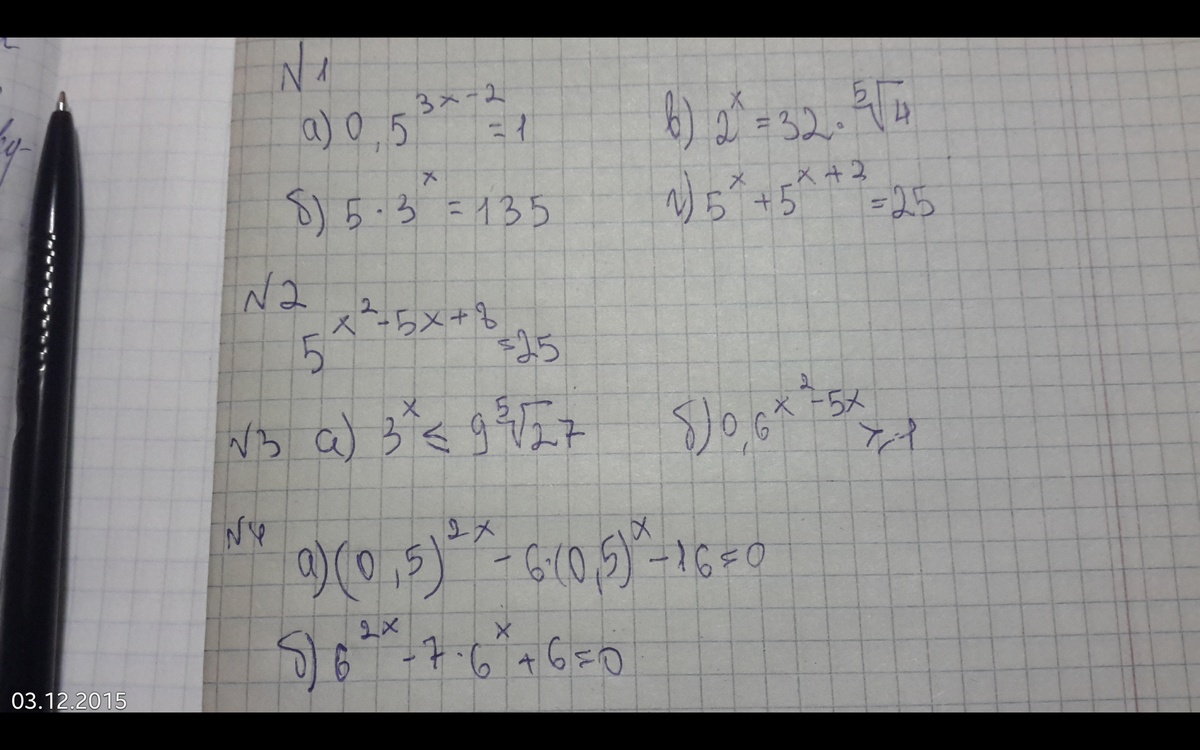 №1
а) 0,5^{3x-2} = 1
в) 2^x = 32 · ⁵√4
б) 5 · 3^x = 135
г) 5^x + 5^{x+2} = 25
№2
5^{x²-5x+8} = 25
№3 а) 3^x ≤ 9 ⁵√27
б) 0,6^{x²-5x} ≥ 1
№4
а) (0,5)^{2x} - 6·(0,5)^x - 16 = 0
б) 6^{2x} - 7·6^x + 6 = 0
03.12.2015